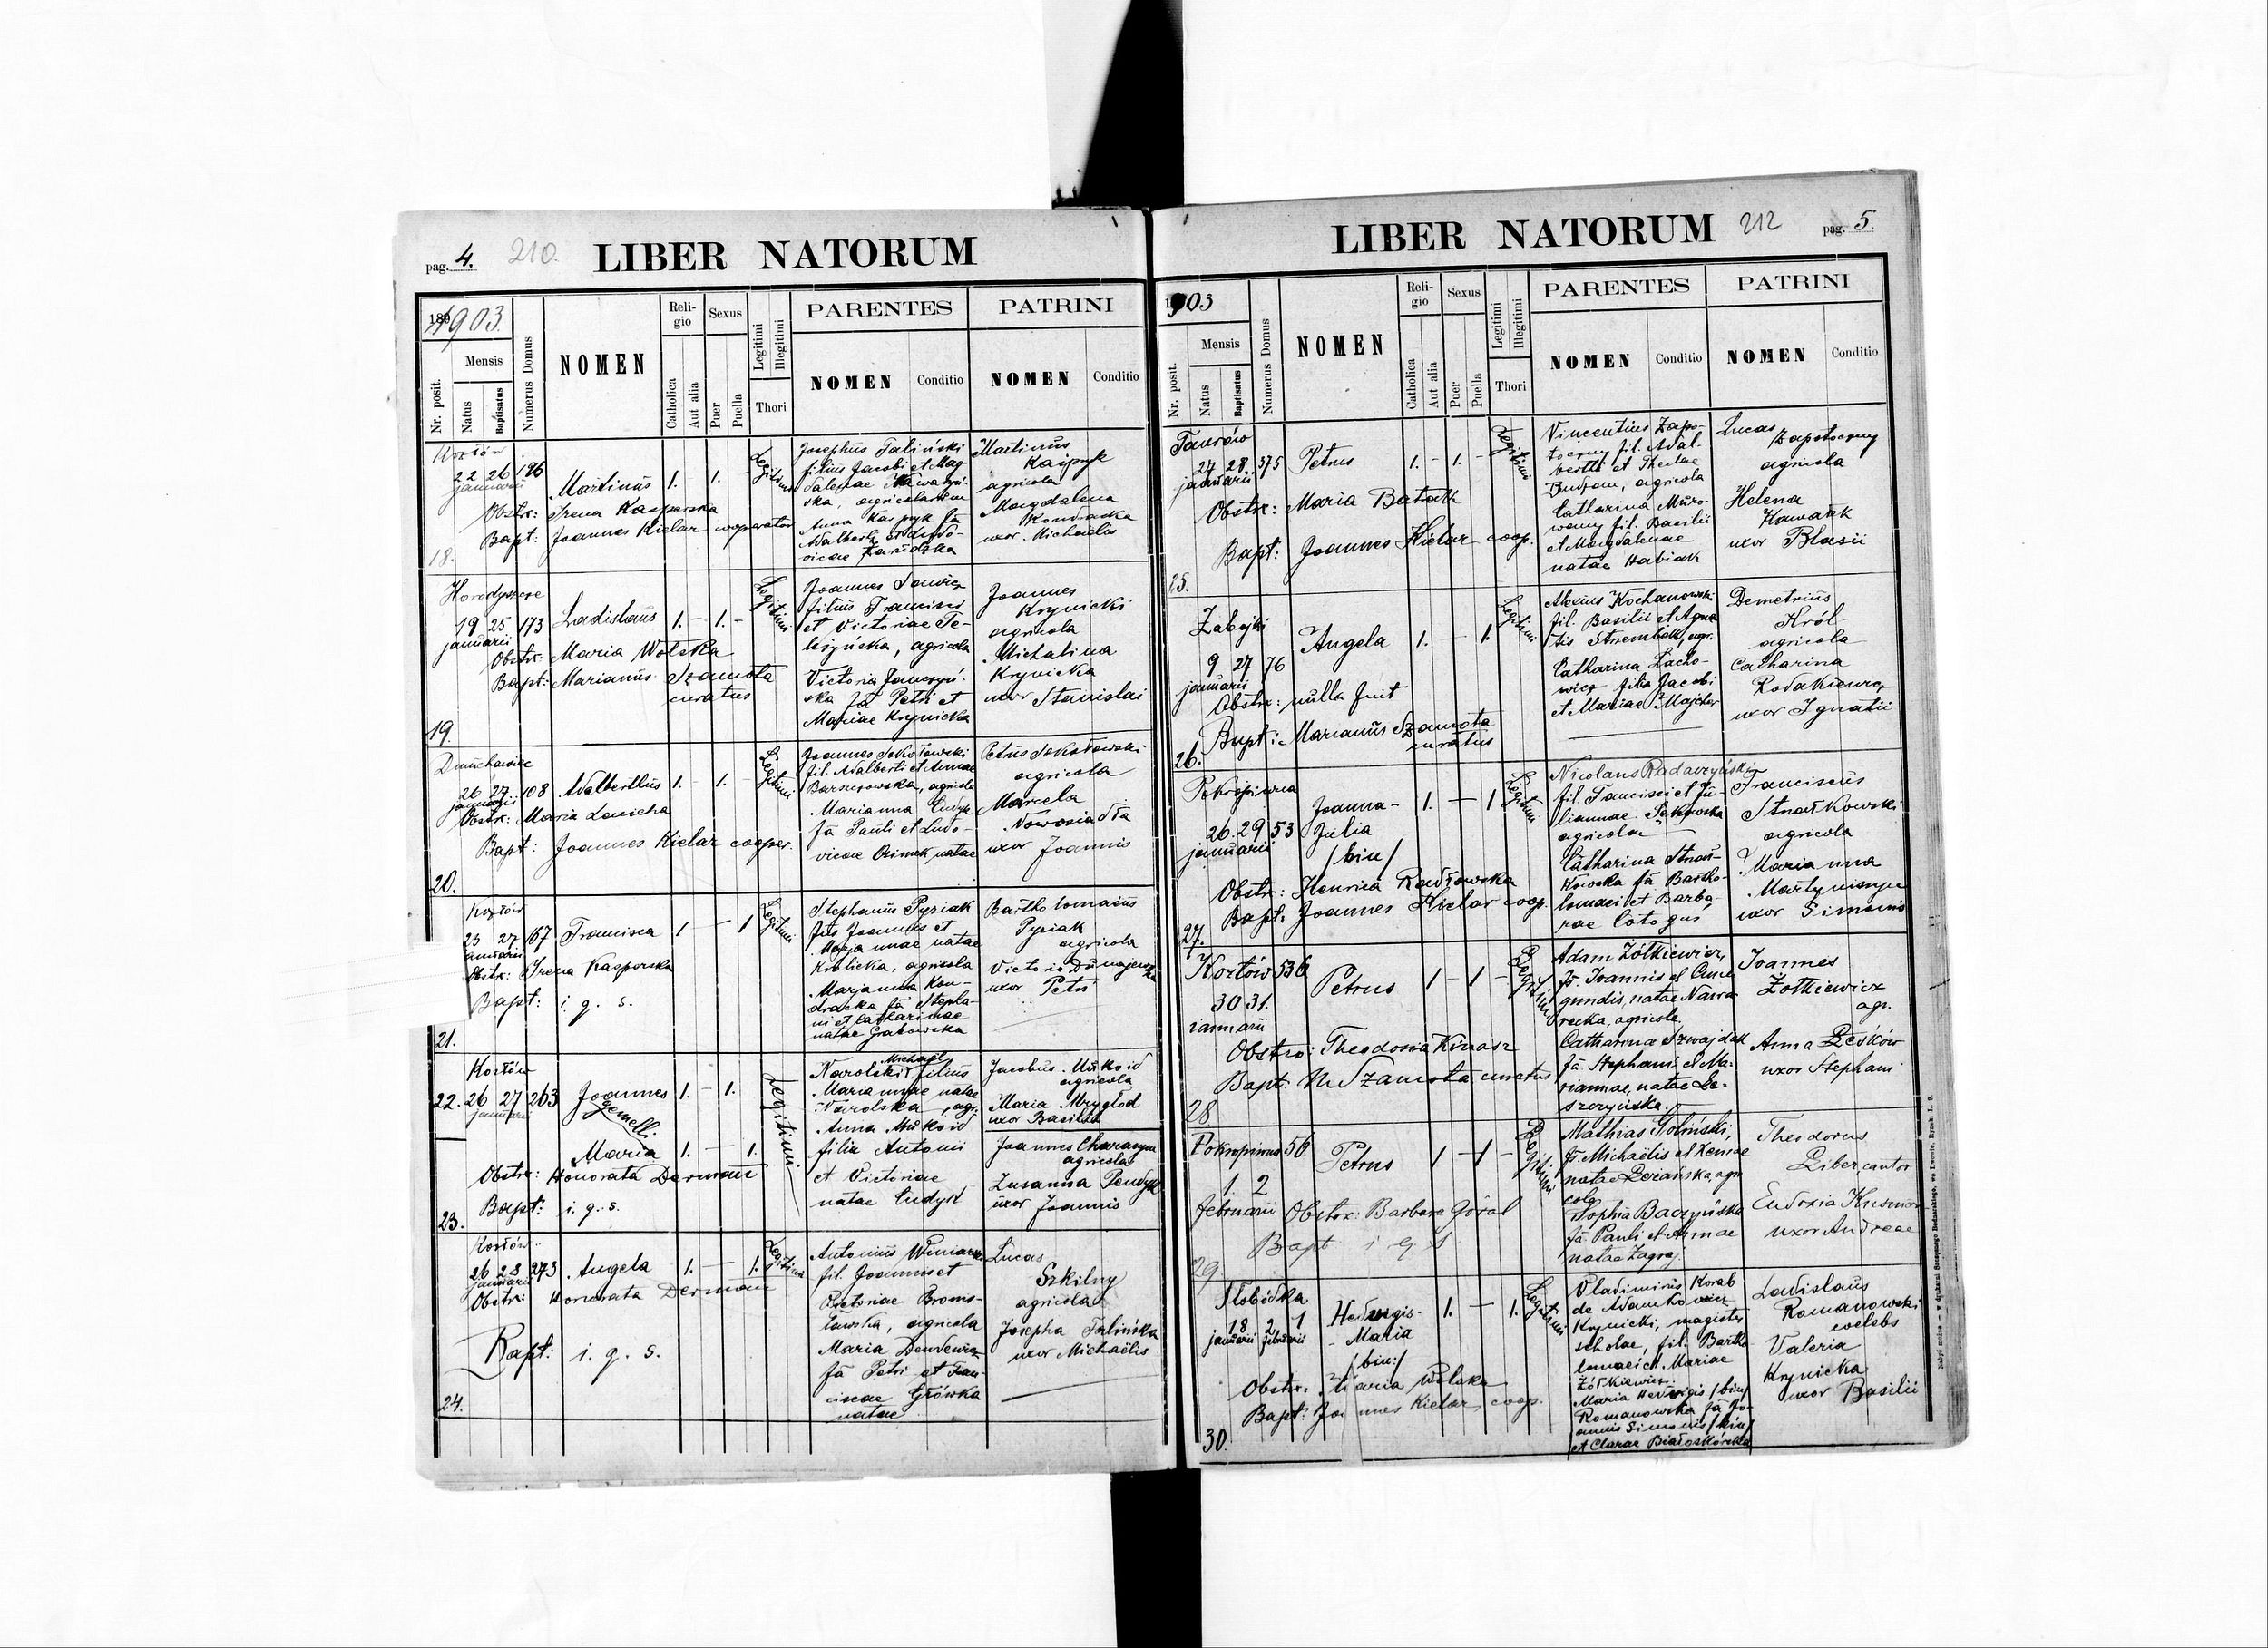 pag. 4. 210. LIBER NATORUM
1903.
Nr. posit.
Mensis
Natus
Baptisatus
Numerus Domus
NOMEN
Reli-
gio
Catholica
Aut alia
Sexus
Puer
Puella
Legitimi
Illegitimi
Thori
PARENTES
NOMEN
Conditio
PATRINI
NOMEN
Conditio
Kozłów
22 26 196
januarii
Martinus 1. - 1.
Legitimi
Obstr: Irena Kasperska
Bapt: Joannes Kielar cooperator
18.
Josephus Taliński
filius Jacobi et Mag-
dalenae
ska, agricolarum
Anna Kasprzyk fa
Adalberti et Ludo-
vicae
Martinus
Kasprzyk
agricola
Magdalena
Kondracka
uxor Michaëlis
Horodyszcze
19 25 173
januarii
Ladislaus 1. - 1. -
Legitimi
Obstr: Maria Wolska
Bapt: Marianus Szamota
curatus
19.
Joannes
filius Francisci
et Victoriae Te-
, agricola
Victoria Janczyń-
ska fa Petri et
Mariae Krynicka
Joannes
Krynicki
agricola
Michalina
Krynicka
uxor Stanislai
Denuchawiec
26 27 108
januarii
Adalberthus 1. - 1. -
Legitimi
Obstr: Maria Lewicha
Bapt: Joannes Kielar cooper.
20.
Joannes Sokołowski
fil. Adalberti et Annae
, agricola
Marianna Cudyk
fa Pauli et Ludo-
vicae natae
Petrus Sokołowski
agricola
Marcela
Nowosiadła
uxor Joannis
Kozłów
25 27 167
januarii
Francisca 1 - 1
Legitimi
Obstr: Irena Kasperska
Bapt: i. q. s.
21.
Stephanus Pyziak
fils Joannis et
Marjannae natae
Krolicka, agricola
Marjanna Kon-
dracka fa Stepha-
ni et Catharinae
natae Grabowska
Bartholomaeus
Pyziak
agricola
Victoria Dunajewska
uxor Petri
Kozłów
22. 26 27 263
januarii
Joannes 1. - 1.
Gemelli
Maria 1. - 1.
Legitimi
Obstr: Honorata Derman
Bapt: i. q. s.
23.
Michael
Narolski filius
Mariannae natae
Narolska, agr.
Anna Mukoid
filia Antonii
et Victoriae
natae Cudyk
Jacobus Mukoid
agricola
Maria Mryglod
uxor Basilii
Joannes Charaszyn
agricola
Zusanna Pendyk
uxor Joannis
Kozłów
26 28 273
januarii
Angela 1. - 1.
Legitimi
Obstr: Honorata Derman
Bapt: i. q. s.
24.
Antonius Winiarz
fil. Joannis et
Victoriae Broni-
ławska, agricola
Maria
fa Petri et Fran-
ciscae Grówka
natae
Lucas
Szkilny
agricola
Josepha Talińska
uxor Michaëlis
LIBER NATORUM 212 pag. 5.
1903
Nr. posit.
Mensis
Natus
Baptisatus
Numerus Domus
NOMEN
Reli-
gio
Catholica
Aut alia
Sexus
Puer
Puella
Legitimi
Illegitimi
Thori
PARENTES
NOMEN
Conditio
PATRINI
NOMEN
Conditio
Taurów
27 28 375
januarii
Petrus 1. - 1. -
Legitimi
Obstr: Maria Batok
Bapt: Joannes Kielar coop.
25.
Vincentius Zapo-
toczny fil. Adal-
berthi et Theclae
, agricola
Catharina Muro-
wany fil. Basilii
et Magdalenae
natae Habiak
Lucas
Zapotoczny
agricola
Helena
Kawałek
uxor Blasii
Zabojki
9 27 76
januarii
Angela 1. - 1.
Legitimi
Obstr: nulla fuit
Bapt: Marianus Szamota
curatus
26.
Alexius Kochanowski
fil. Basilii et Agne-
tis , agr.
Catharina Lacho-
wicz filia Jacobi
et Mariae Majcher
Demetrius
Król
agricola
Catharina
Rodakiewicz
uxor Ignatii
Pokropiwna
26 29 53
januarii
Joanna-
Julia
/bin/
1. - 1
Legitimi
Obstr: Henrica Radłowska
Bapt: Joannes Kielar coop.
27.
Nicolaus Radaczyński
fil. Francisci et Ju-
liannae
agricola
Catharina Strał-
kowska fa Bartho-
lomaei et Barba-
rae
Franciscus
Strałkowski
agricola
Marianna
Martyniszyn
uxor Simonis
Kozłów 536
30 31.
ianuarii
Petrus 1 - 1 -
Legitimi
Obstr: Theodosia Kinasz
Bapt. M. Szamota curatus
28
Adam Żółkiewicz,
fs. Ioannis et Cune-
gundis, natae Nawa-
recka, agricola.
Catharina Szwajdak
fa Stephani et Ma-
riannae, natae Le-
szczyńska.
Ioannes
Żółkiewicz
agr.
Anna Leśków
uxor Stephani
Pokropiwna 56
1. 2
februarii
Petrus 1 - 1 -
Legitimi
Obstr: Barbara Góral
Bapt i q s
29
Mathias Goliński,
fs. Michaëlis et Xeniae
natae , agri
cola
Sophia Baczyńska
fa. Pauli et Annae
natae Zagraj.
Theodorus
Liber, cantor
Eudoxia
uxor Andreae
Słobódka
18 2 1
januarii februarii
Hedvigis-
- Maria
/bin:/
1. - 1.
Legitimi
Obstr: Maria Wolska
Bapt: Joannes Kielar, coop.
30.
Vladimirus Korab
de Adamkowicz
Krynicki, magister
scholae, fil. Bartho
lomaei et Mariae
Żółkiewicz.
Maria Hedvigis /bin/
Romanowska fa Jo-
annis Simonis /bin/
et Clarae Białoskórska
Ladislaus
Romanowski
coelebs
Valeria
Krynicka
uxor Basilii